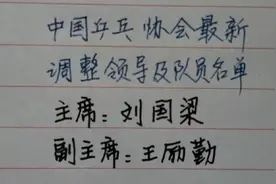 中国乒乓协会最新
调整领导及队员名单
主席：刘国梁
副主席：王励勤